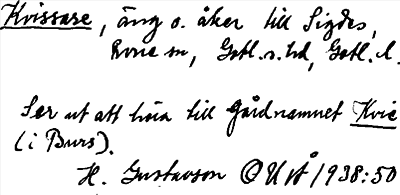 Kvissase, äng o. åker till Sigdes,
sn, Gotl. s. hd, Gotl. l.
Ser ut att höra till gårdnamnet Kvie
(i Burs).
H. Gustavson OUÅ 1938:50